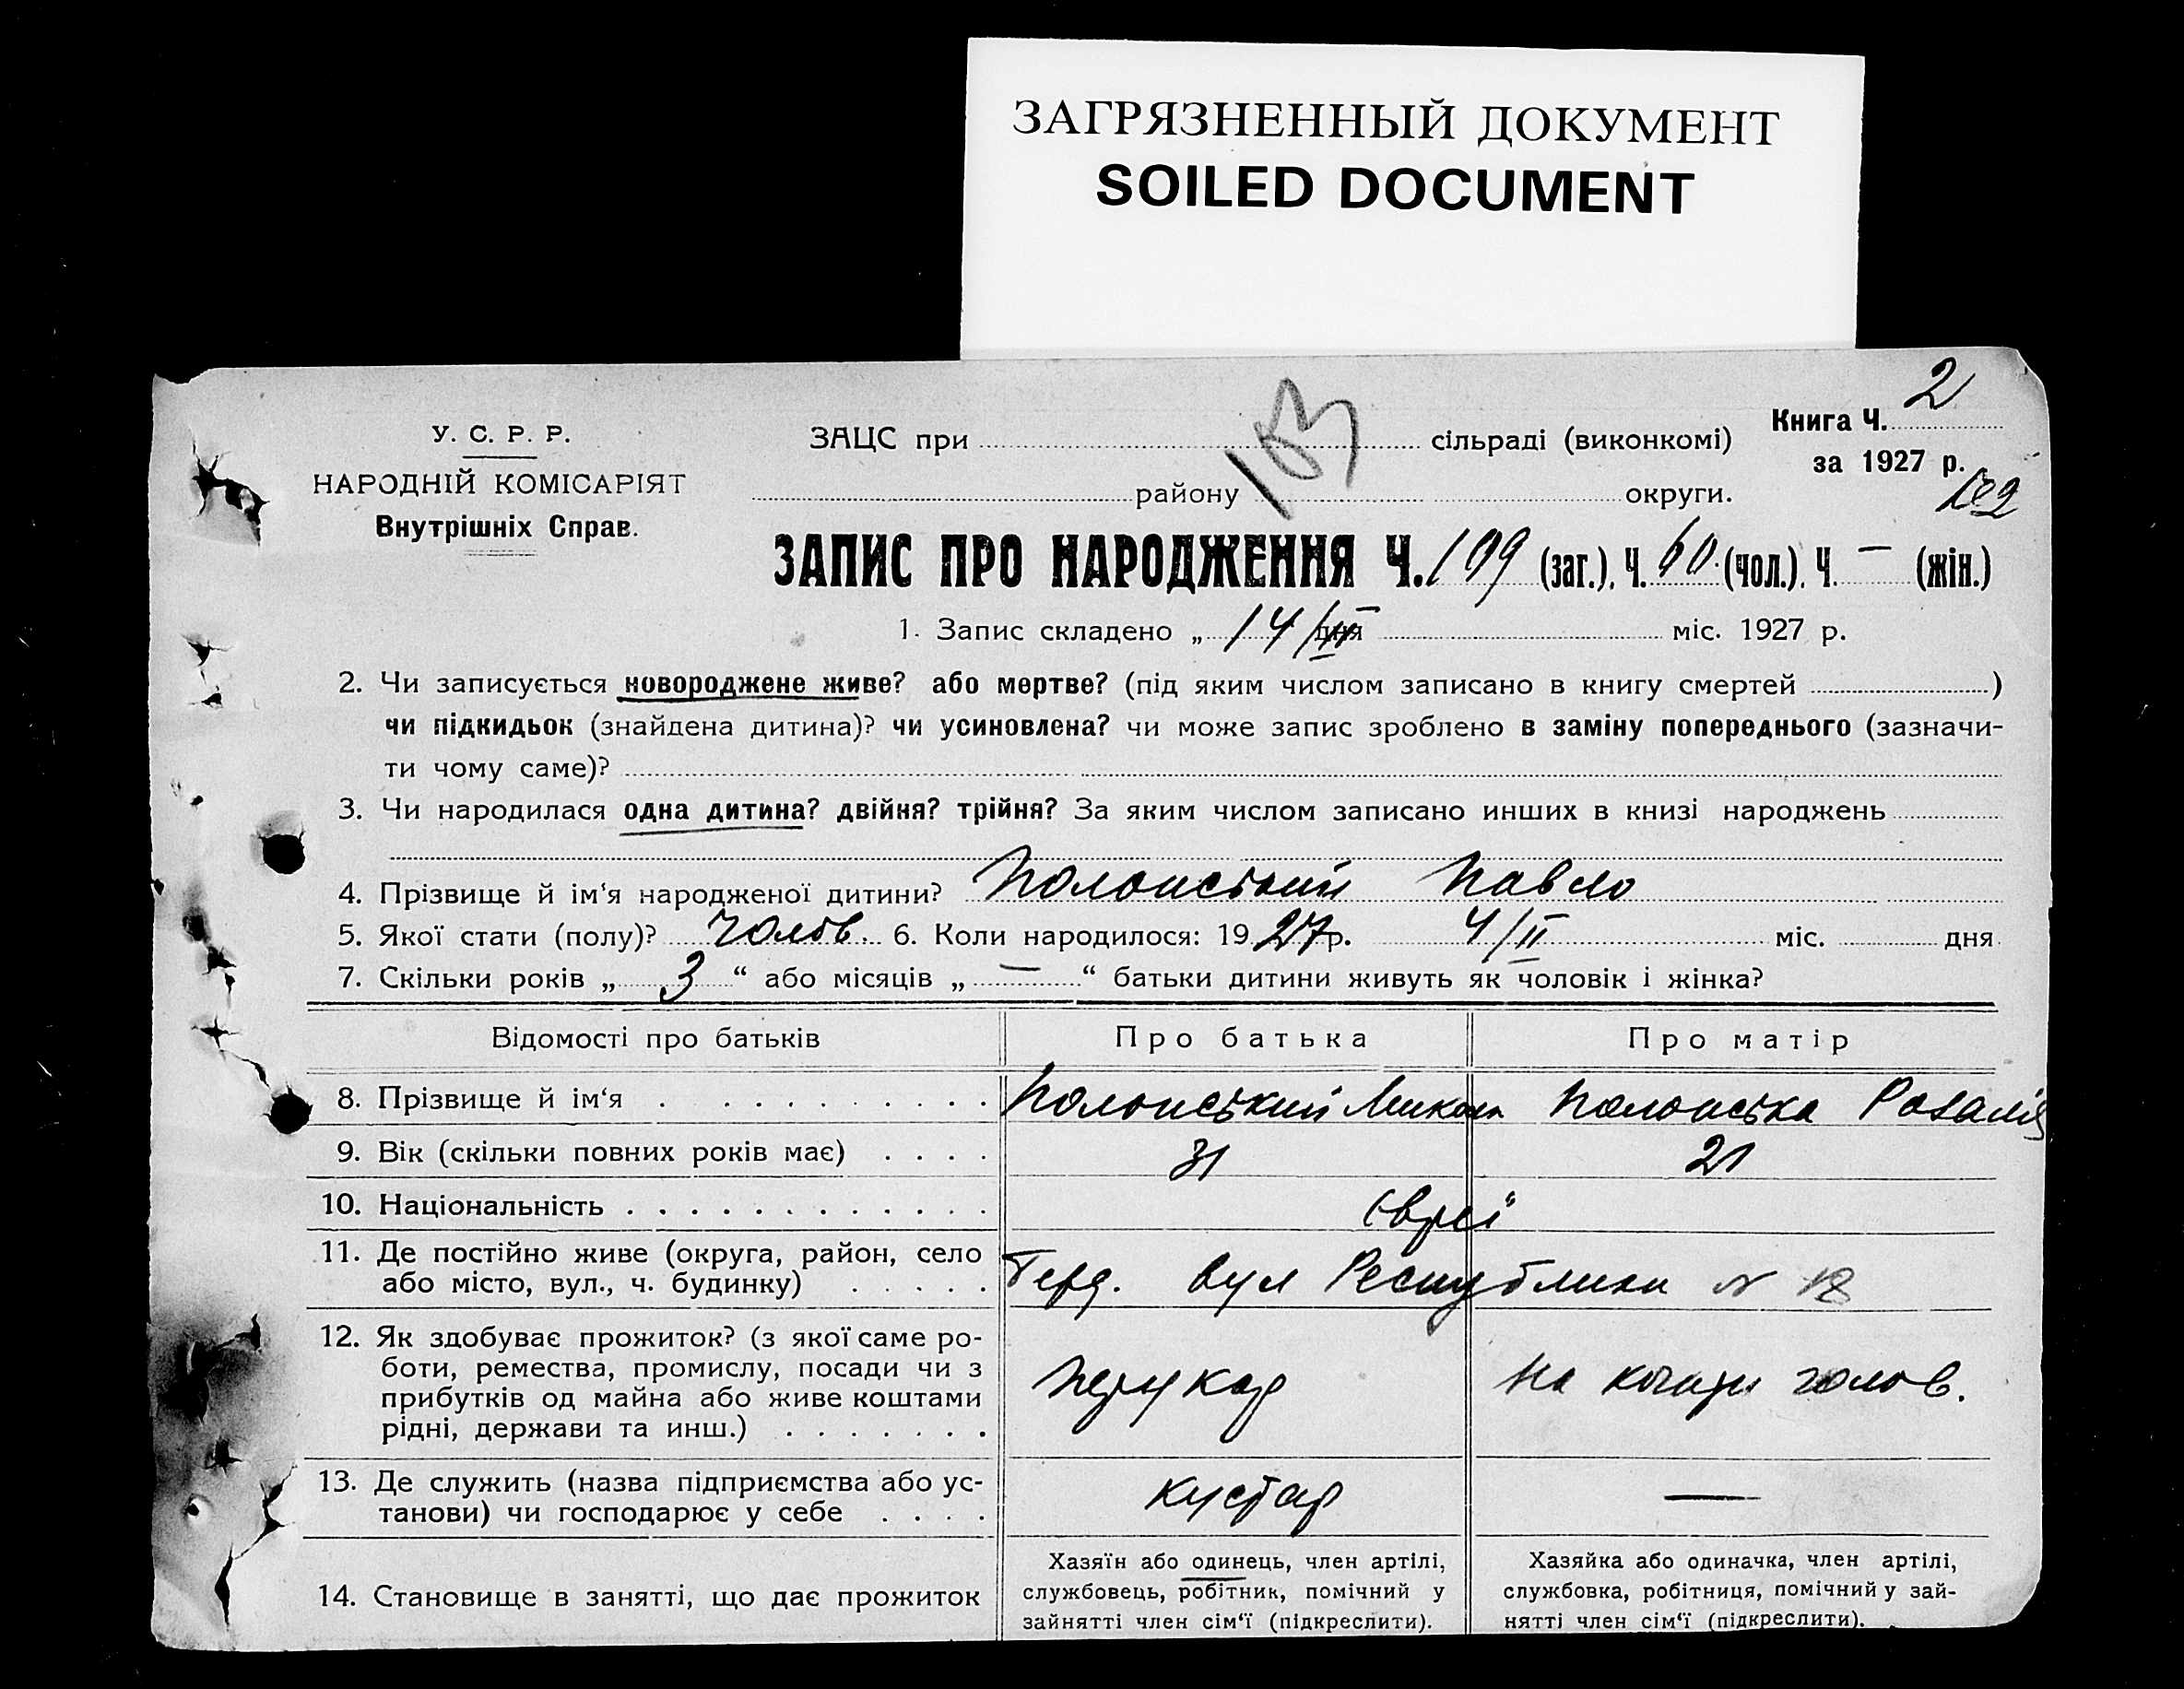 ЗАГРЯЗНЕННЫЙ ДОКУМЕНТ
SOILED DOCUMENT
У. С. Р. Р.
НАРОДНІЙ КОМІСАРІЯТ
Внутрішніх Справ.
ЗАЦС при сільраді (виконкомі)
району округи.
153
Книга Ч. 2
за 1927 р.
ЗАПИС ПРО НАРОДЖЕННЯ Ч. 109 (заг.), Ч. 60 (чол.), Ч. — (жін.)
1. Запис складено „ 14/III дня міс. 1927 р.
2. Чи записується новороджене живе? або мертве? (під яким числом записано в книгу смертей )
чи підкидьок (знайдена дитина)? чи усиновлена? чи може запис зроблено в заміну попереднього (зазначи-
ти чому саме)?
3. Чи народилася одна дитина? двійня? трійня? За яким числом записано инших в книзі народжень
4. Прізвище й ім‘я народженої дитини? Полонський Павло
5. Якої стати (полу)? Чолов. 6. Коли народилося: 1927 р. 4/II міс. дня
7. Скільки років „ 3 “ або місяців „ — “ батьки дитини живуть як чоловік і жінка?
Відомості про батьків Про батька Про матір
8. Прізвище й ім‘я Полонський Микола Полонська Розалія
9. Вік (скільки повних років має) 31 21
10. Національність євреї
11. Де постійно живе (округа, район, село
або місто, вул., ч. будинку) Берд. вул Республики N 18
12. Як здобуває прожиток? (з якої саме ро-
боти, ремества, промислу, посади чи з
прибутків од майна або живе коштами
рідні, держави та инш.) Перукар На кошти голов.
13. Де служить (назва підприємства або ус-
танови) чи господарює у себе Кустар —
14. Становище в занятті, що дає прожиток
Хазяїн або одинець, член артілі,
службовець, робітник, помічний у
зайнятті член сім‘ї (підкреслити).
Хазяйка або одиначка, член артілі,
службовка, робітниця, помічний у зай-
нятті член сім‘ї (підкреслити).